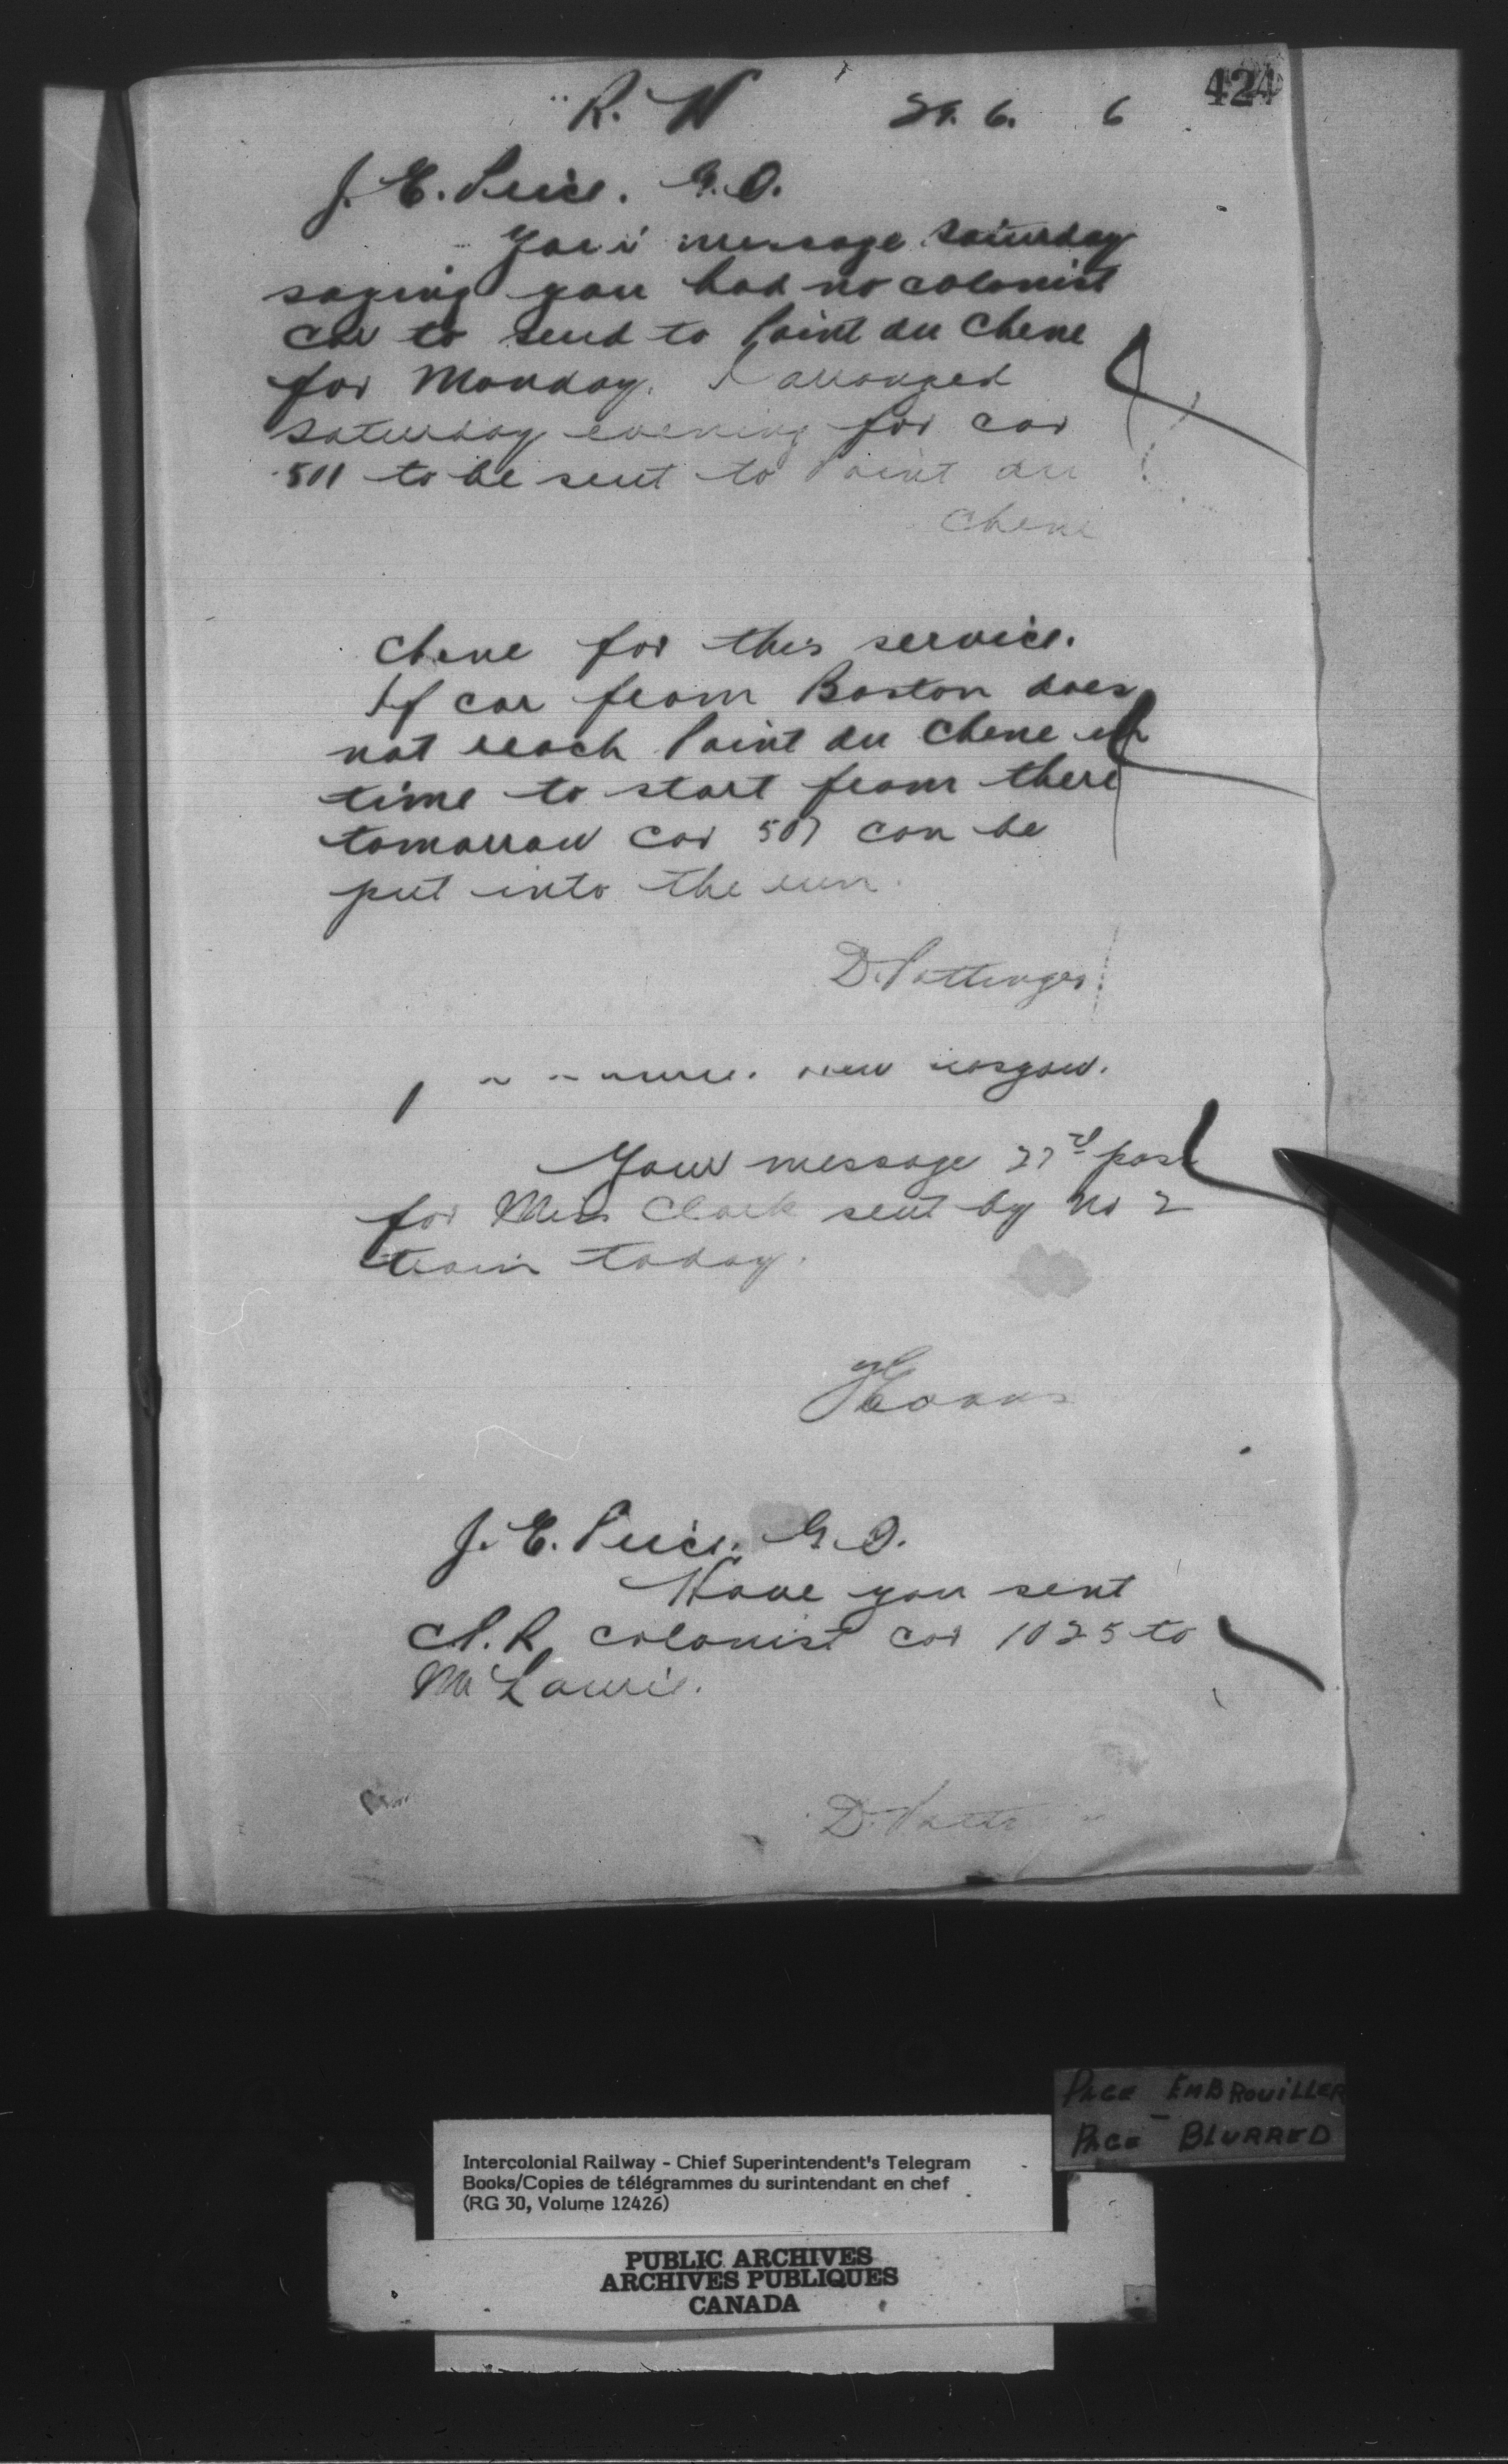 424
R. W 29. 6. 6
J. E. Price. G.O.
Your message Saturday
saying you had no colonist
car to send to Point du Chene
for Monday. I arranged
Saturday evening for car
501 to be sent to Point du
Chene
Chene for this service.
If car from Boston does
not reach Point du Chene in
time to start from there
tomorrow car 501 can be
put into the run.
D. Pottinger
Your message 27th pass
for Miss Clark sent by No 2
train today.
J. E. Price. G.O.
Have you sent
C.P.R colonist car 1025 to
McLaurie.
D. Potti
PAGE EMBROUILLER
PAGE BLURRED
Intercolonial Railway - Chief Superintendent's Telegram
Books/Copies de télégrammes du surintendant en chef
(RG 30, Volume 12426)
PUBLIC ARCHIVES
ARCHIVES PUBLIQUES
CANADA